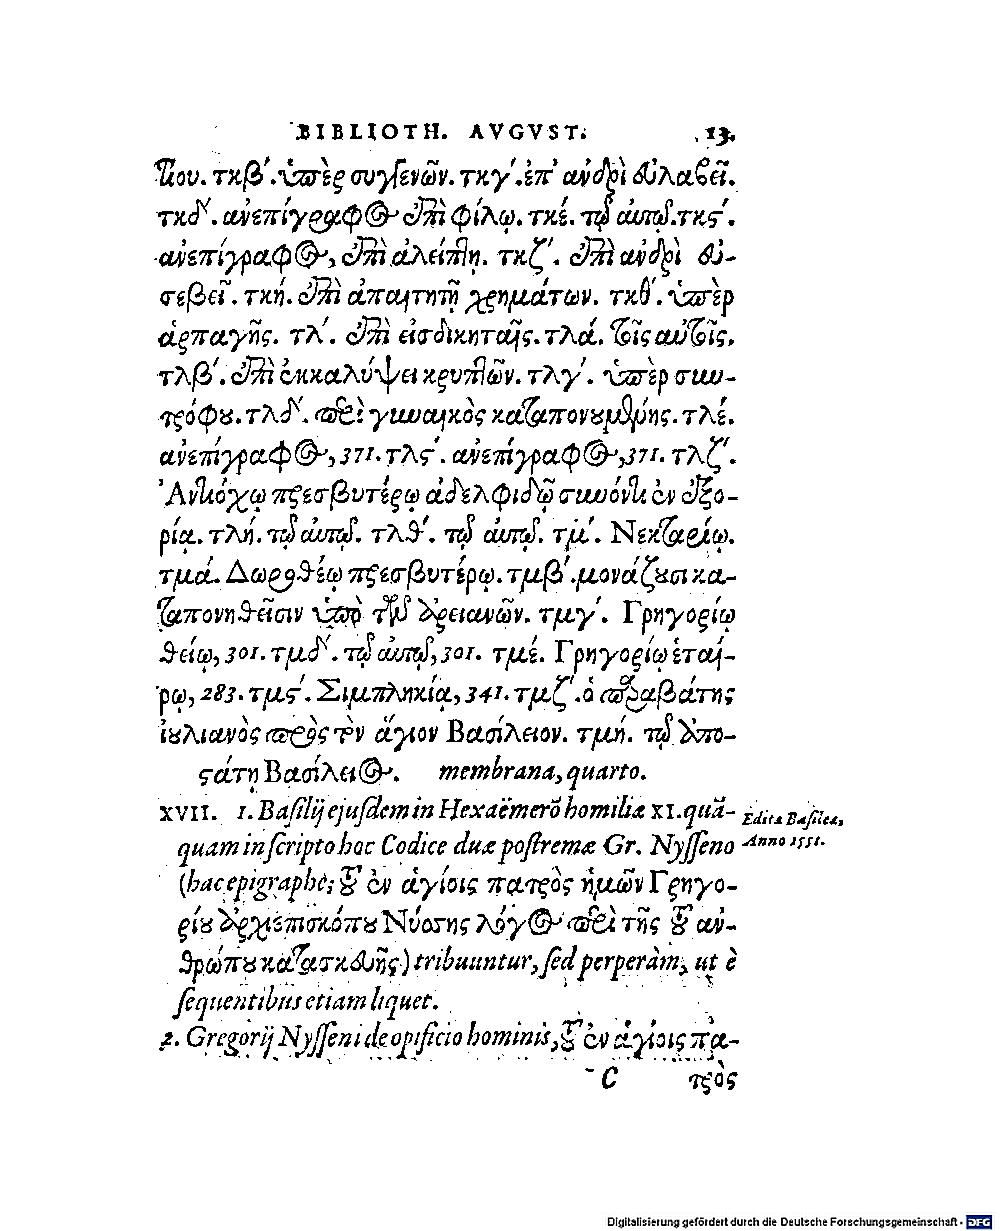 BIBLIOTH. AVGVST. 13.
τίου. τκβ΄. ὑπὲρ συγγενῶν. τκγ΄. ἐπ' ἀνδρὶ εὐλαβεῖ.
τκδ΄. ἀνεπίγραφος ἐπὶ φίλῳ. τκέ. τῷ αὐτῷ. τκϛ΄.
ἀνεπίγραφος, ἐπὶ ἀλείπτῃ. τκζ΄. ἐπὶ ἀνδρὶ εὐ-
σεβεῖ. τκή. ἐπὶ ἀπαιτητῇ χρημάτων. τκθ΄. ὑπὲρ
ἁρπαγῆς. τλ΄. ἐπὶ εἰσδικηταῖς. τλά. τοῖς αὐτοῖς.
τλβ΄. ἐπὶ ἐκκαλύψει κρυπτῶν. τλγ΄. ὑπὲρ συν-
τρόφου. τλδ΄. περὶ γυναικὸς καταπονουμένης. τλέ.
ἀνεπίγραφος, 371. τλϛ΄. ἀνεπίγραφος, 371. τλζ΄.
Ἀντιόχῳ πρεσβυτέρῳ ἀδελφιδῷ συνόντι ἐν ἐξο-
ρίᾳ. τλή. τῷ αὐτῷ. τλθ΄. τῷ αὐτῷ. τμ΄. Νεκταρίῳ.
τμά. Δωροθέῳ πρεσβυτέρῳ. τμβ΄. μονάζουσι κα-
ταπονηθεῖσιν ὑπὸ τῶν ἀρειανῶν. τμγ΄. Γρηγορίῳ
θείῳ, 301. τμδ΄. τῷ αὐτῷ, 301. τμέ. Γρηγορίῳ ἑταί-
ρῳ, 283. τμϛ΄. Σιμπληκίᾳ, 341. τμζ΄. ὁ παραβάτης
ἰουλιανὸς πρὸς τὸν ἅγιον Βασίλειον. τμή. τῷ ἀπο-
στάτῃ Βασίλειος. membrana, quarto.
XVII. 1. Basilij ejusdem in Hexaëmerõ homiliæ XI. quã-
quam inscripto hoc Codice duæ postremæ Gr. Nysseno
(hac epigraphe; τοῦ ἐν ἁγίοις πατρὸς ἡμῶν Γρηγο-
ρίου ἀρχιεπισκόπου Νύσσης λόγος περὶ τῆς τοῦ ἀν-
θρώπου κατασκευῆς) tribuuntur, sed perperàm, ut è
sequentibus etiam liquet.
2. Gregorij Nysseni de opificio hominis, τοῦ ἐν ἁγίοις πα-
C τρὸς
Edita Basileæ,
Anno 1551.
Digitalisierung gefördert durch die Deutsche Forschungsgemeinschaft - DFG